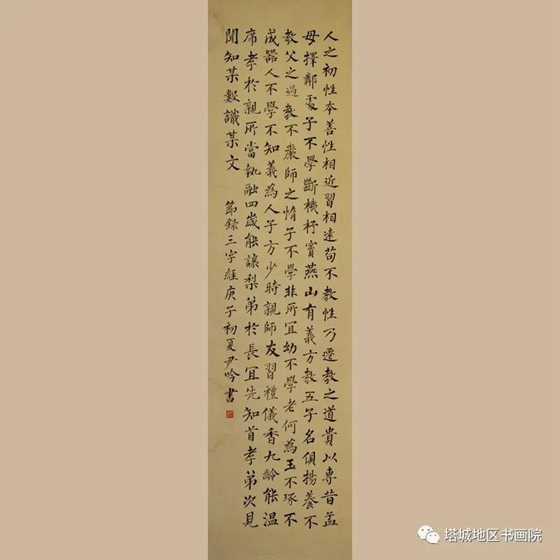 人之初性本善性相近習相遠苟不教性乃遷教之道貴以專昔孟
母擇鄰處子不學斷機杼竇燕山有義方教五子名俱揚養不
教父之過教不嚴師之惰子不學非所宜幼不學老何為玉不琢不
成器人不學不知義為人子方少時親師友習禮儀香九齡能溫
席孝於親所當執融四歲能讓梨弟於長宜先知首孝弟次見
聞知某數識某文
節錄三字經庚子初夏尹吟書
塔城地区书画院